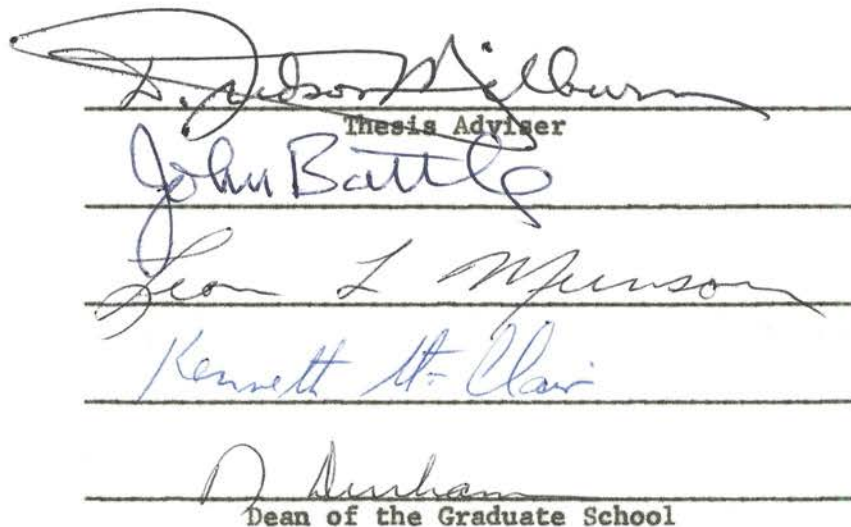 D. Judson Milburn
Thesis Adviser
John Battle
Leon L Munson
Kenneth St. Clair
D Durham
Dean of the Graduate School